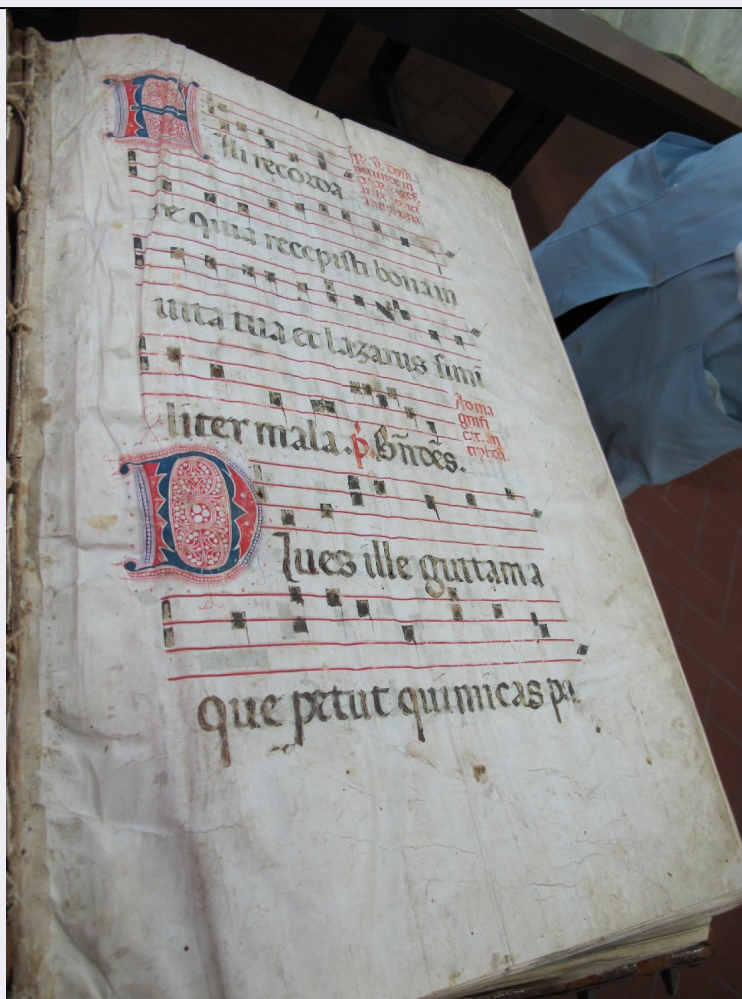 Fili recorda
re quia recepisti bonam
uita tua et lazarus simi
liter mala. p. Bñdcẽs.
Ad ma
gnifi
cat. an
Diues ille guttam a
que petiit qui micas pa